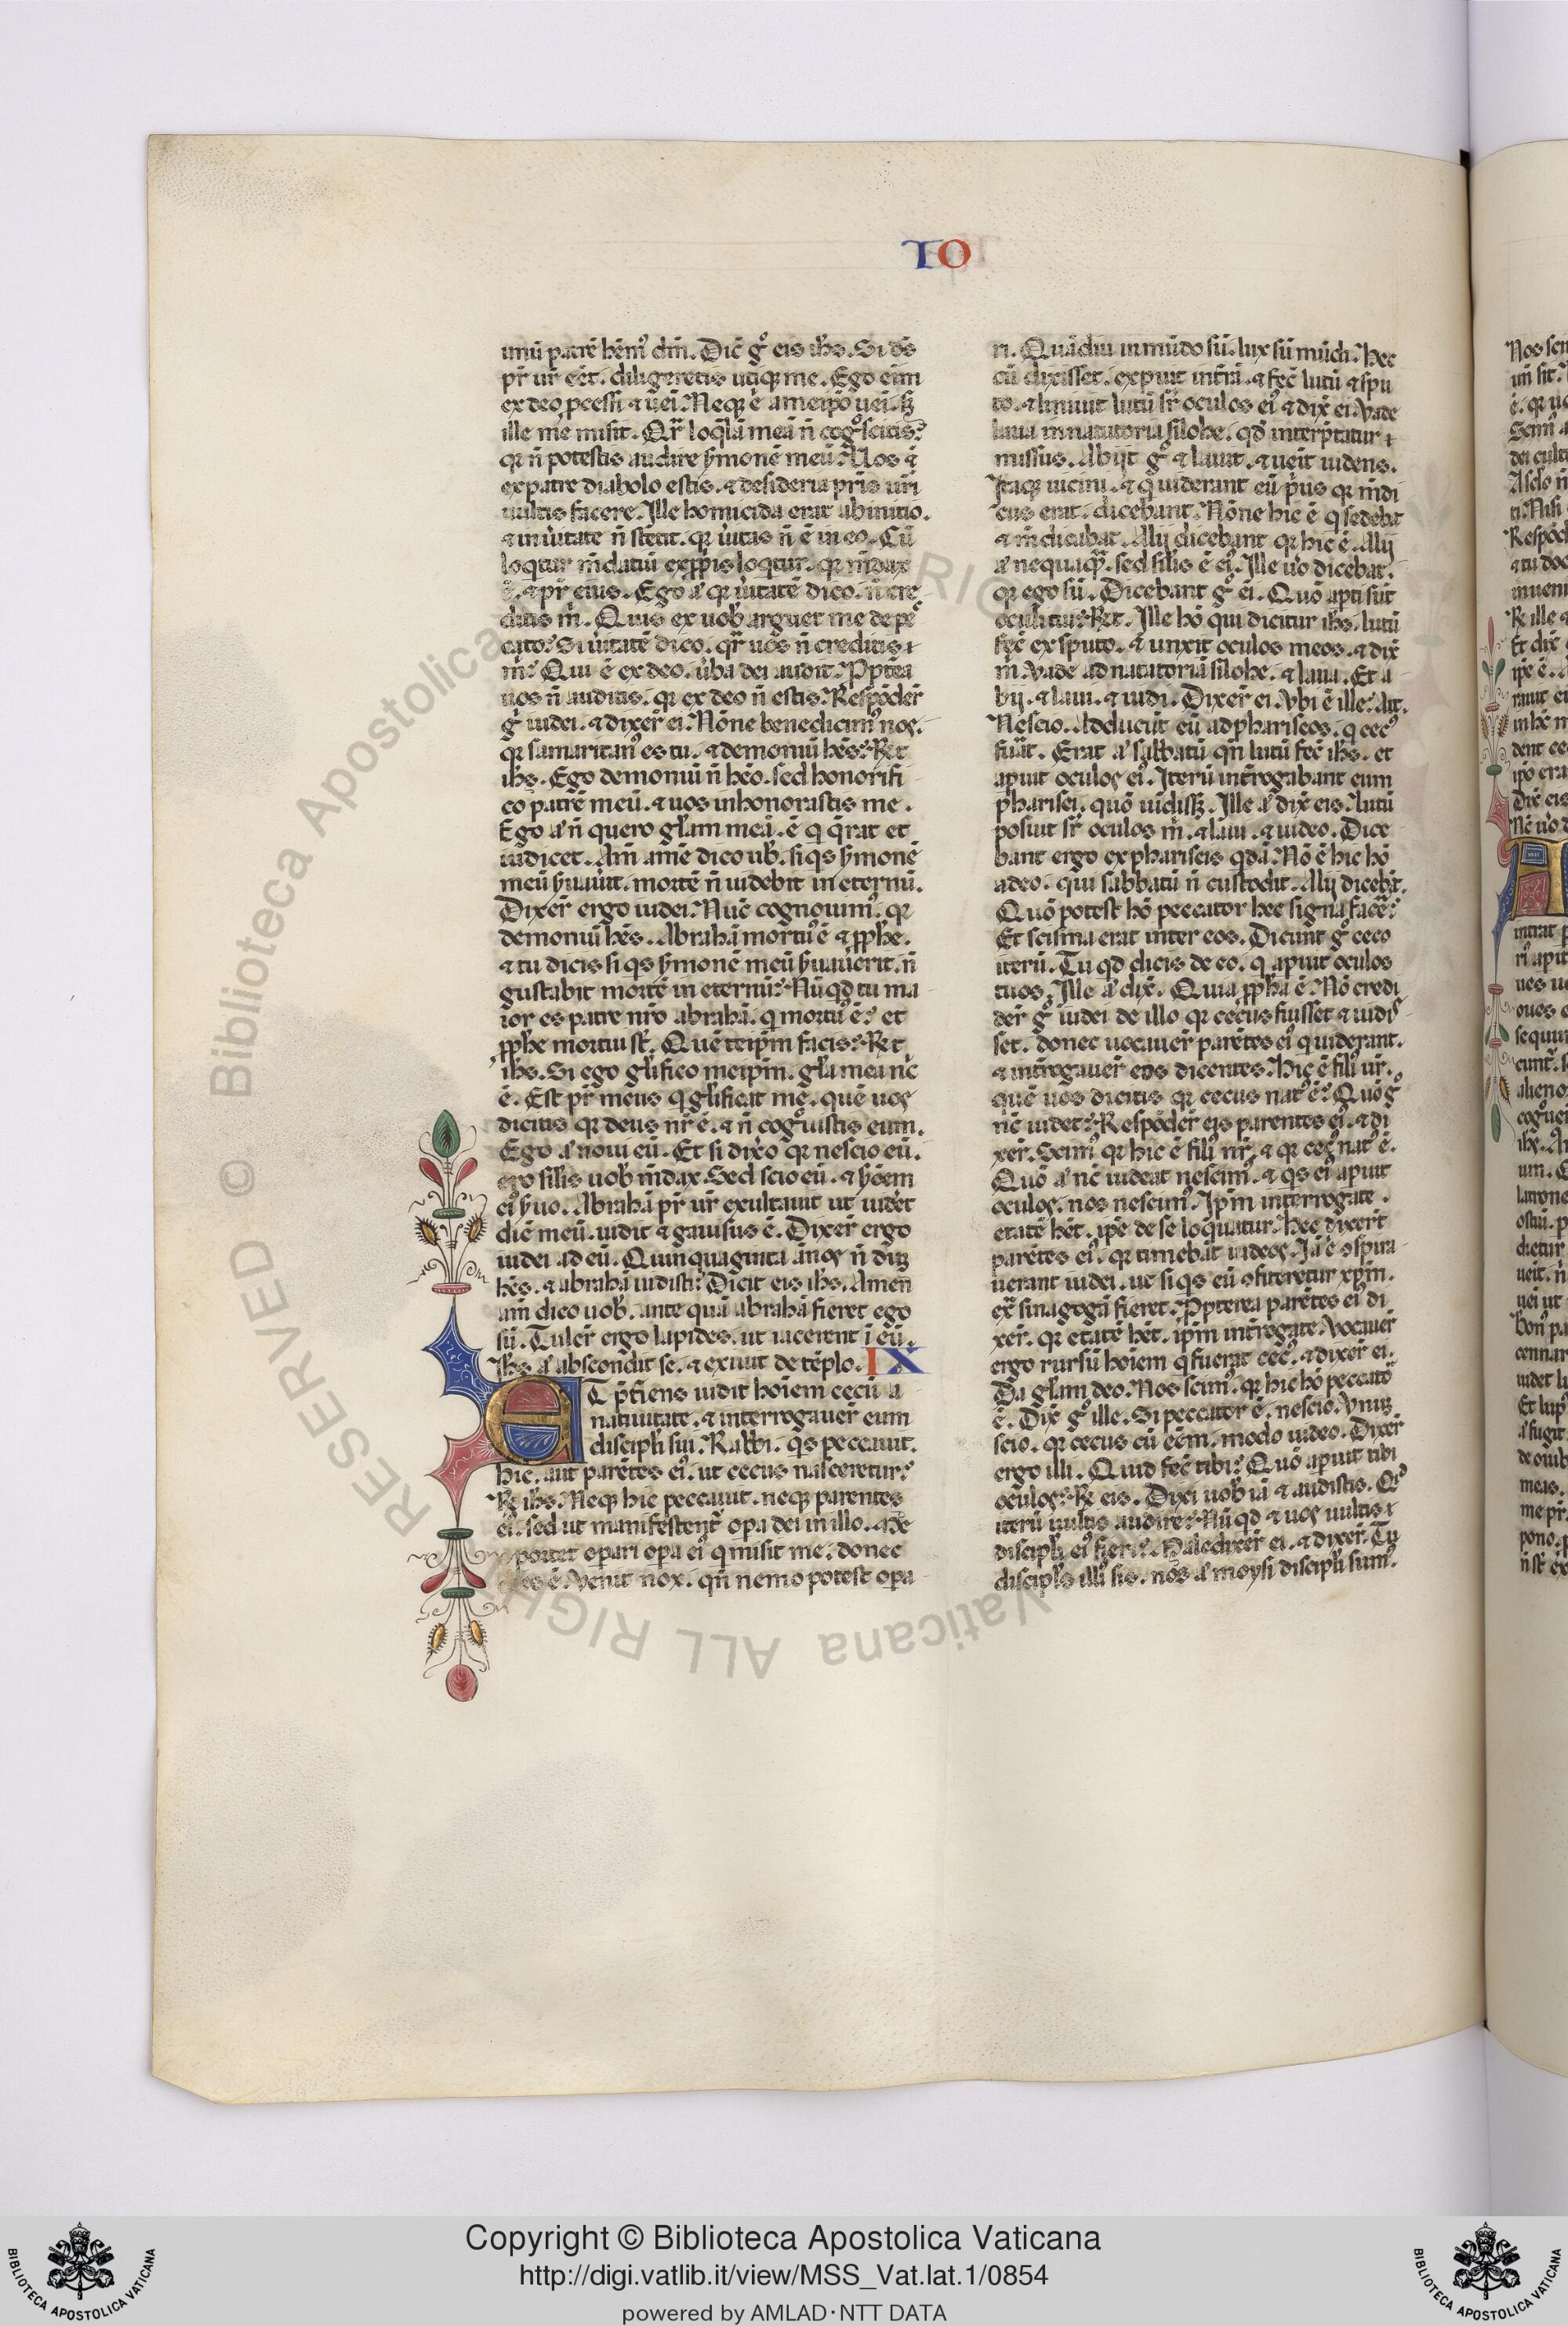 IO
unū patrē hēmꝰ dm̄. Dic̄ gͦ eis ihs̄. Si ds̄
pr̄ ur̄ eēt. diligeretis utiqꝫ me. Ego eim̄
ex deo ꝓcessi ⁊ uēi. Neqꝫ ē a meip̄o uēi. sꝫ
ille me misit. Qr̄ loq̄lā meā n̄ cogͦscitis?
qꝛ n̄ potestis audire ẜmonē meū. Uos
ex patre diabolo estis. ⁊ desideria pr̄is ur̄i
uultis facere. Ille homicida erat ab initio.
⁊ in ùitate n̄ stetit. qꝛ ùitas n̄ ē in eo. Cū
loqtur m̄datiū ex ꝓp̄is loqtur. qꝛ m̄dax
ē. ⁊ pr̄ eius. Ego aͣ qꝛ ùitatē dico. n̄ cre
ditis m̄. Quis ex uob̄ arguet me de pec̄
cato? Si ùitatē dico. qr̄ uos n̄ creditis
m̄? Qui ē ex deo. ùba dei audit. Ꝓpt̄ea
uos n̄ auditis. qꝛ ex deo n̄ estis. Respōder̄
gͦ iudei. ⁊ dixer̄ ei. Nōne benedicimꝰ nos.
qꝛ samaritanꝰ es tu. ⁊ demoniū hēs? Rͤt
ihs̄. Ego demoniū n̄ hēo. sed honorifi
co patrē meū. ⁊ uos inhonorastis me.
Ego aͣ n̄ quero gl̄am meā. ē q q̄rat et
iudicet. Am̄ amē dico ub̄. si qs ẜmonē
meū ẜuaùit. mortē n̄ uidebit in eternū.
Dixer̄ ergo iudei. Nūc cognouimꝰ. qꝛ
demoniū hēs. Abrahā mortuꝰ ē ⁊ ꝓph̄e.
⁊ tu dicis si qs ẜmonē meū ẜuauerit. n̄
gustabit mortē in eternū? Nūqd tu ma
ior es patre nr̄o abrahā. q mortuꝰ ē? et
ꝓph̄e mortui st̄. Quē teip̄m facis? Rͤt
ihs̄. Si ego gl̄ifico meip̄m. gl̄a mea nͨ
ē. Est pr̄ meus q gl̄ificat me. quē uos
dicitis qꝛ deus nr̄ ē. ⁊ n̄ cogͦuistis eum.
Ego aͣ noui eū. Et si dixo qꝛ nescio eū.
ero sil̄is uob̄ m̄dax. Sed scio eū. ⁊ ẜōem
eiꝰ ẜuo. Abrahā pr̄ ur̄ exultauit ut uidēt
diē meū. uidit ⁊ gauisus ē. Dixer̄ ergo
iudei ad eū. Quinquaginta ānos n̄ dū
hēs. ⁊ abrahā uidisti? Dicit eis ihs̄. Amen
am̄ dico uob̄. ante quā abrahā fieret ego
sū. Tuler̄ ergo lapides. ut iacerent ī eū.
Ihs̄ aͣ abscondit se. ⁊ exiuit de tēplo. IX
ET p̄t̄iens uidit hoīem cecū a
natiuitate. ⁊ interrogauer̄ eum
discipl̄i sui. Rabbi. qs peccauit.
hic. aut parētes eiꝰ. ut cecus nasceretur?
Rͤ ihs̄. Neqꝫ hic peccauit. neqꝫ parentes
eiꝰ. sed ut manifestent̄ opa dei in illo. Me
oportet opari opa eiꝰ q misit me. donec
dies ē. Venit nox. qn̄ nemo potest opa
ri. Quādiu in mūdo sū. lux sū mūdi. Hec
cū dixisset. expuit int̄rā. ⁊ fec̄ lutū ⁊ spu
to. ⁊ liniuit lutū sr̄ oculos eiꝰ ⁊ dix̄ ei. Vade
laua in natatoria silohe. qd̄ interp̄tatur
missus. Abijt gͦ ⁊ lauit. ⁊ ueīt uidens.
Itaqꝫ uicini. ⁊ q uiderant eū p̄us qꝛ m̄di
cus erat. dicebant. Nōne hic ē q sedebat
⁊ m̄dicabat. Alij dicebant qꝛ hic ē. Alij
aͣ nequaqꝫ. sed sil̄is ē eiꝰ. Ille ùo dicebat.
qꝛ ego sū. Dicebant gͦ ei. Quō apti sūt
oculi tui? Rͤt. Ille hō qui dicitur ihs̄. lutū
fec̄ ex sputo. ⁊ unxit oculos meos. ⁊ dix̄
m̄. Vade ad natatoriā silohe. ⁊ laua. Et a
bij. ⁊ laui. ⁊ uidi. Dixer̄ ei. Vbi ē ille. Ait.
Nescio. Adducūt eū ad phariseos. q cecꝰ
fuāt. Erat aͣ sabbatū qn̄ lutū fec̄ ihs̄. et
apuit oculos eiꝰ. Iterū int̄rogabant eum
pharisei. quō uidissꝫ. Ille aͣ dix̄ eis. lutū
posuit sr̄ oculos m̄. ⁊ laui. ⁊ uideo. Dice
bant ergo ex phariseis qdā. Nō ē hic hō
a deo. qui sabbatū n̄ custodit. Alij dicebāt.
Quō potest hō peccator hec signa facē?
Et scisma erat inter eos. Dicunt gͦ ceco
iterū. Tu qd dicis de eo. q apuit oculos
tuos. Ille aͣ dix̄. Quia ꝓph̄a ē. Nō credi
der̄ gͦ iudei de illo qꝛ cecus fuisset ⁊ uidiſ
set. donec uocauer̄ parētes eiꝰ q uiderant.
⁊ int̄rogauer̄ eos dicentes. Hic ē filiꝰ ur̄.
quē uos dicitis qꝛ cecus natꝰ ē? Quō gͦ
nc̄ uidet? Respōder̄ eis parentes eiꝰ. ⁊ di
xer̄. Scimꝰ qꝛ hic ē filiꝰ nr̄. ⁊ qꝛ cecꝰ natꝰ ē.
Quō aͣ nc̄ uideat nescimꝰ. ⁊ qs eiꝰ apuit
oculos. nos nescimꝰ. Ip̄m interrogate.
etatē hēt. ip̄e de se loquatur. Hec dixer̄t
parētes eiꝰ. qꝛ timebāt iudeos. Iā ē ꝯspira
uerant iudei. ut si qs eū ꝯfiteretur xp̄m.
ex̄ sinagogā fieret. Ꝓpterea parētes eiꝰ di
xer̄. qꝛ etatē hēt. ip̄m int̄rogate. Vocauer̄
ergo rursū hoīem q fuerat cecꝰ. ⁊ dixer̄ ei.
Da gl̄am deo. Nos scimꝰ. qꝛ hic hō peccatō
ē. Dix̄ gͦ ille. Si peccator ē. nescio. Vnū
scio. qꝛ cecus cū eēm. modo uideo. Dixer̄
ergo illi. Quid fec̄ tibi? Quō apuit tibi
oculos? Rͤ eis. Dixi uob̄ iā ⁊ audistis. Qͥd
iterū uultis audire? Nūqd ⁊ uos uultis
discipl̄i eiꝰ fieri? Maledixer̄ ei. ⁊ dixer̄. Tu
discipl̄s illiꝰ sis. nos aͣ moysi discipl̄i sumꝰ.
© Biblioteca Apostolica Vaticana ALL RIGHTS RESERVED
Copyright © Biblioteca Apostolica Vaticana
http://digi.vatlib.it/view/MSS_Vat.lat.1/0854
powered by AMLAD·NTT DATA
BIBLIOTECA APOSTOLICA VATICANA
BIBLIOTECA APOSTOLICA VATICANA